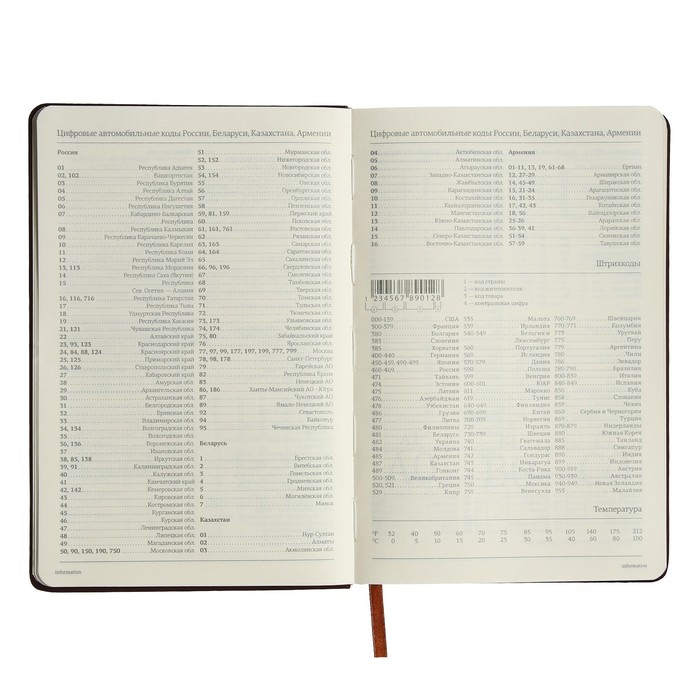 Цифровые автомобильные коды России, Беларуси, Казахстана, Армении
Россия
01 Республика Адыгея
02, 102 Башкортостан
03 Республика Бурятия
04 Республика Алтай
05 Республика Дагестан
06 Республика Ингушетия
07 Кабардино-Балкарская
07 Республика
08 Республика Калмыкия
09 Республика Карачаево-Черкессия
10 Республика Карелия
11 Республика Коми
12 Республика Марий Эл
13, 113 Республика Мордовия
14 Республика Саха (Якутия)
15 Республика
Сев. Осетия — Алания
16, 116, 716 Республика Татарстан
17 Республика Тыва
18 Удмуртская Республика
19 Республика Хакасия
21, 121 Чувашская Республика
22 Алтайский край
23, 93, 123 Краснодарский край
24, 84, 88, 124 Красноярский край
25, 125 Приморский край
26, 126 Ставропольский край
27 Хабаровский край
28 Амурская обл.
29 Архангельская обл.
30 Астраханская обл.
31 Белгородская обл.
32 Брянская обл.
33 Владимирская обл.
34, 134 Волгоградская обл.
35 Вологодская обл.
36, 136 Воронежская обл.
37 Ивановская обл.
38, 85, 138 Иркутская обл.
39, 91 Калининградская обл.
40 Калужская обл.
41 Камчатский край
42, 142 Кемеровская обл.
43 Кировская обл.
44 Костромская обл.
45 Курганская обл.
46 Курская обл.
47 Ленинградская обл.
48 Липецкая обл.
49 Магаданская обл.
50, 90, 150, 190, 750 Московская обл.
51 Мурманская обл.
52, 152 Нижегородская обл.
53 Новгородская обл.
54, 154 Новосибирская обл.
55 Омская обл.
56 Оренбургская обл.
57 Орловская обл.
58 Пензенская обл.
59, 81, 159 Пермский край
60 Псковская обл.
61, 161, 761 Ростовская обл.
62 Рязанская обл.
63, 163 Самарская обл.
64, 164 Саратовская обл.
65 Сахалинская обл.
66, 96, 196 Свердловская обл.
67 Смоленская обл.
68 Тамбовская обл.
69 Тверская обл.
70 Томская обл.
71 Тульская обл.
72 Тюменская обл.
73, 173 Ульяновская обл.
74, 174 Челябинская обл.
75, 80 Забайкальский край
76 Ярославская обл.
77, 97, 99, 177, 197, 199, 777, 799 Москва
78, 98, 178 Санкт-Петербург
79 Еврейская АО
Республика Крым
83 Ненецкий АО
86, 186 Ханты-Мансийский АО - Югра
87 Чукотский АО
89 Ямало-Ненецкий АО
92 Севастополь
94 Байконур
95 Чеченская Республика
Беларусь
1 Брестская обл.
2 Витебская обл.
3 Гомельская обл.
4 Гродненская обл.
5 Минская обл.
6 Могилёвская обл.
7 Минск
Казахстан
01 Нур-Султан
02 Алматы
03 Акмолинская обл.
information
Цифровые автомобильные коды России, Беларуси, Казахстана, Армении
04 Актюбинская обл.
05 Алматинская обл.
06 Атырауская обл.
07 Западно-Казахстанская обл.
08 Жамбылская обл.
09 Карагандинская обл.
10 Костанайская обл.
11 Кызылординская обл.
12 Мангистауская обл.
13 Южно-Казахстанская обл.
14 Павлодарская обл.
15 Северо-Казахстанская обл.
16 Восточно-Казахстанская обл.
Армения
01-11, 13, 19, 61-68 Ереван
12, 27-29 Армавирская обл.
14, 45-49 Ширакская обл.
15, 21-24 Араратская обл.
16, 31-35 Гехаркуникская обл.
17, 42, 43 Котайкская обл.
18, 56 Вайоцдзорская обл.
25-26 Арагацотнская обл.
36-39, 41 Лорийская обл.
51-54 Сюникская обл.
57-59 Тавушская обл.
Штрихкоды
1 234567 890128
1 2 3 4
1 — код страны
2 — код изготовителя
3 — код товара
4 — контрольная цифра
США
Франция
380 Болгария
383 Словения
385 Хорватия
400-440 Германия
Япония
Россия
471 Тайвань
474 Эстония
475 Латвия
476 Азербайджан
478 Узбекистан
486 Грузия
477 Литва
480 Филиппины
481 Беларусь
482 Украина
484 Молдова
485 Армения
487 Казахстан
489 Гонконг
Великобритания
520, 521 Греция
529 Кипр
535 Мальта
539 Ирландия
Бельгия
Люксембург
560 Португалия
569 Исландия
570-579 Дания
590 Польша
599 Венгрия
600-601 ЮАР
Марокко
619 Тунис
Финляндия
Китай
Норвегия
729 Израиль
Швеция
740 Гватемала
741 Сальвадор
742 Гондурас
743 Никарагуа
744 Коста-Рика
745 Панама
750 Мексика
759 Венесуэла
760-769 Швейцария
770-771 Колумбия
773 Уругвай
775 Перу
779 Аргентина
780 Чили
786 Эквадор
Бразилия
Италия
Испания
850 Куба
858 Словакия
859 Чехия
860 Сербия и Черногория
Турция
Нидерланды
880 Южная Корея
885 Таиланд
888 Сингапур
890 Индия
899 Индонезия
Австрия
Австралия
Новая Зеландия
955 Малайзия
Температура
°F 32 40 50 60 70 75 85 95 105 140 175 212
°C 0 5 10 15 20 25 30 35 40 60 80 100
information